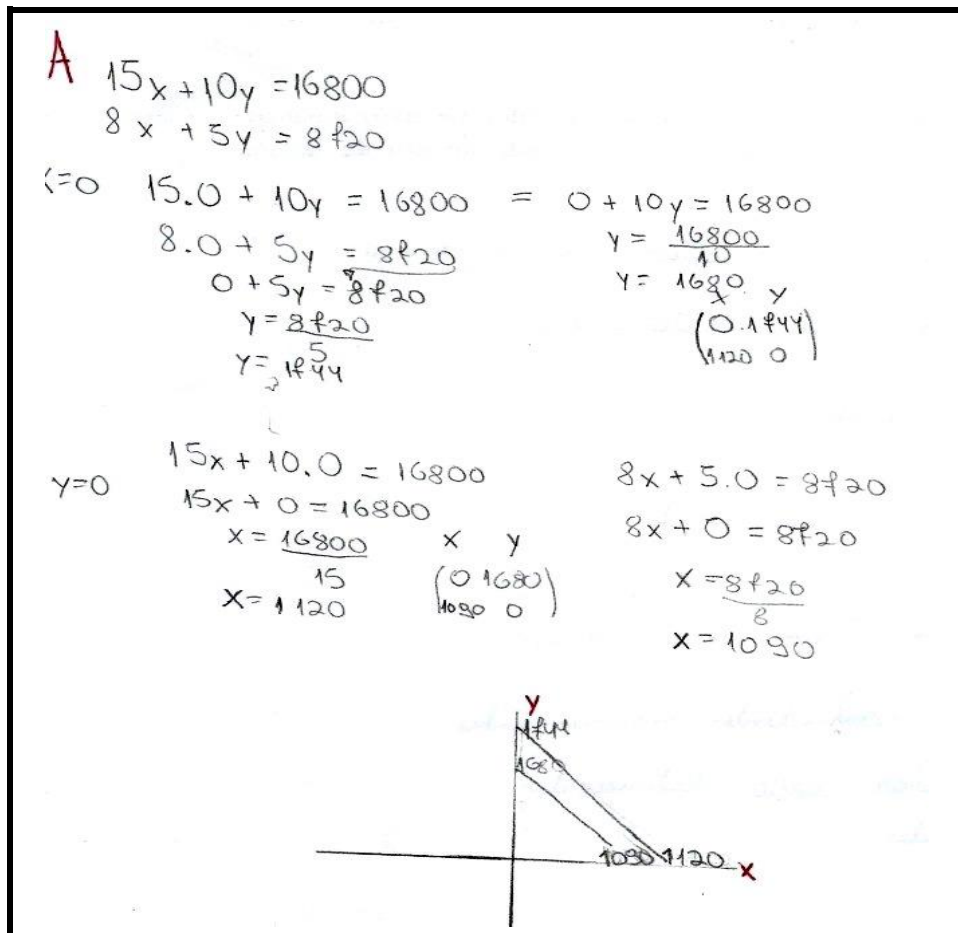 A
15x + 10y = 16800
8x + 5y = 8720
x=0 15.0 + 10y = 16800 = 0 + 10y = 16800
8.0 + 5y = 8720
0 + 5y = 8720
y = 8720
5
y = 1744
y = 16800
10
y = 1680
x y
(0.1744)
(1120 0)
y=0 15x + 10.0 = 16800
15x + 0 = 16800
x = 16800
15
x = 1120
x y
(0 1680)
(1090 0)
8x + 5.0 = 8720
8x + 0 = 8720
x = 8720
8
x = 1090
y
1744
1680
1090 1120 x